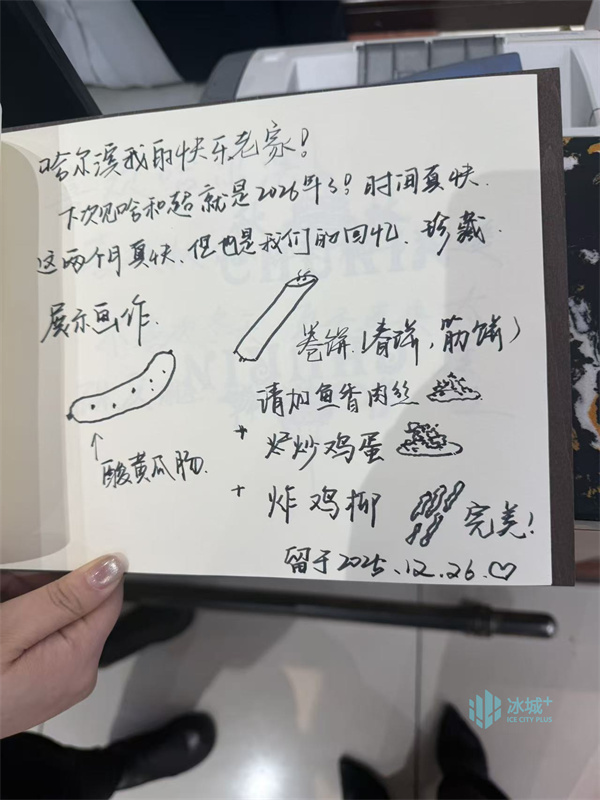 哈尔滨我的快乐老家!
下次见哈和超就是2026年了! 时间真快.
这两个月真快、但也是我们的回忆、珍藏.
展示画作.
卷饼.(春饼,筋饼)
请加鱼香肉丝
酸黄瓜肠.
+ 炒鸡蛋
+ 炸鸡柳
完美!
留于2025.12.26.♡
冰城+
ICE CITY PLUS